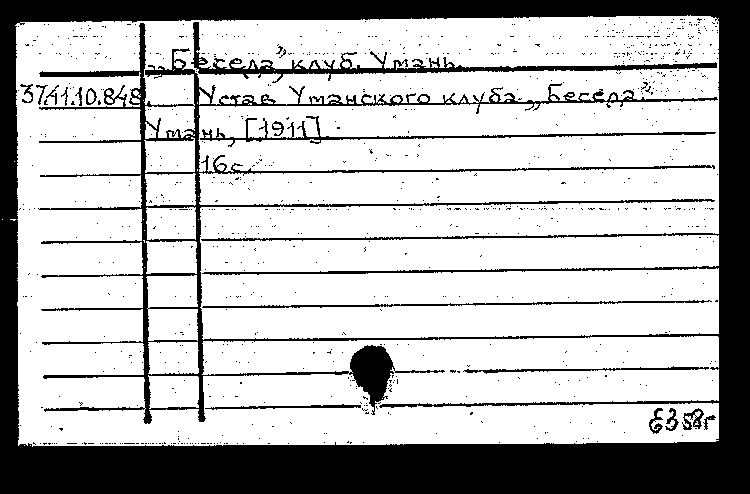 „Беседа", клуб. Умань.
37.41.10.848. Устав Уманского клуба „Беседа".
Умань, [1911].
16с.